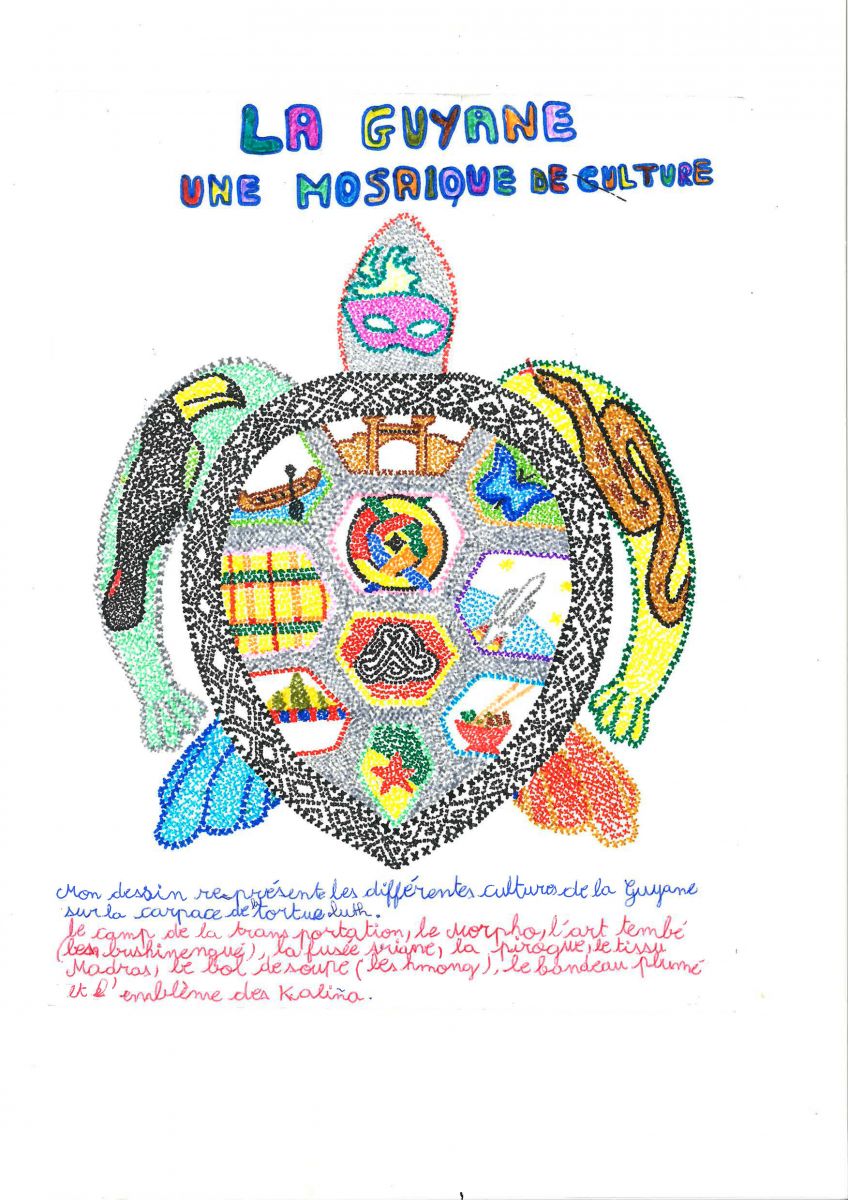 LA GUYANE
UNE MOSAIQUE DE CULTURE
Mon dessin représente les différentes cultures de la Guyane
sur la carpace de la tortue luth.
le camp de la transportation, le morpho, l'art tembé
(les bushinengué), la fusée ariane, la pirogue, le tissu
Madras, le bol de soupe (les hmong), le bandeau plumé
et l'emblème des Kaliña.